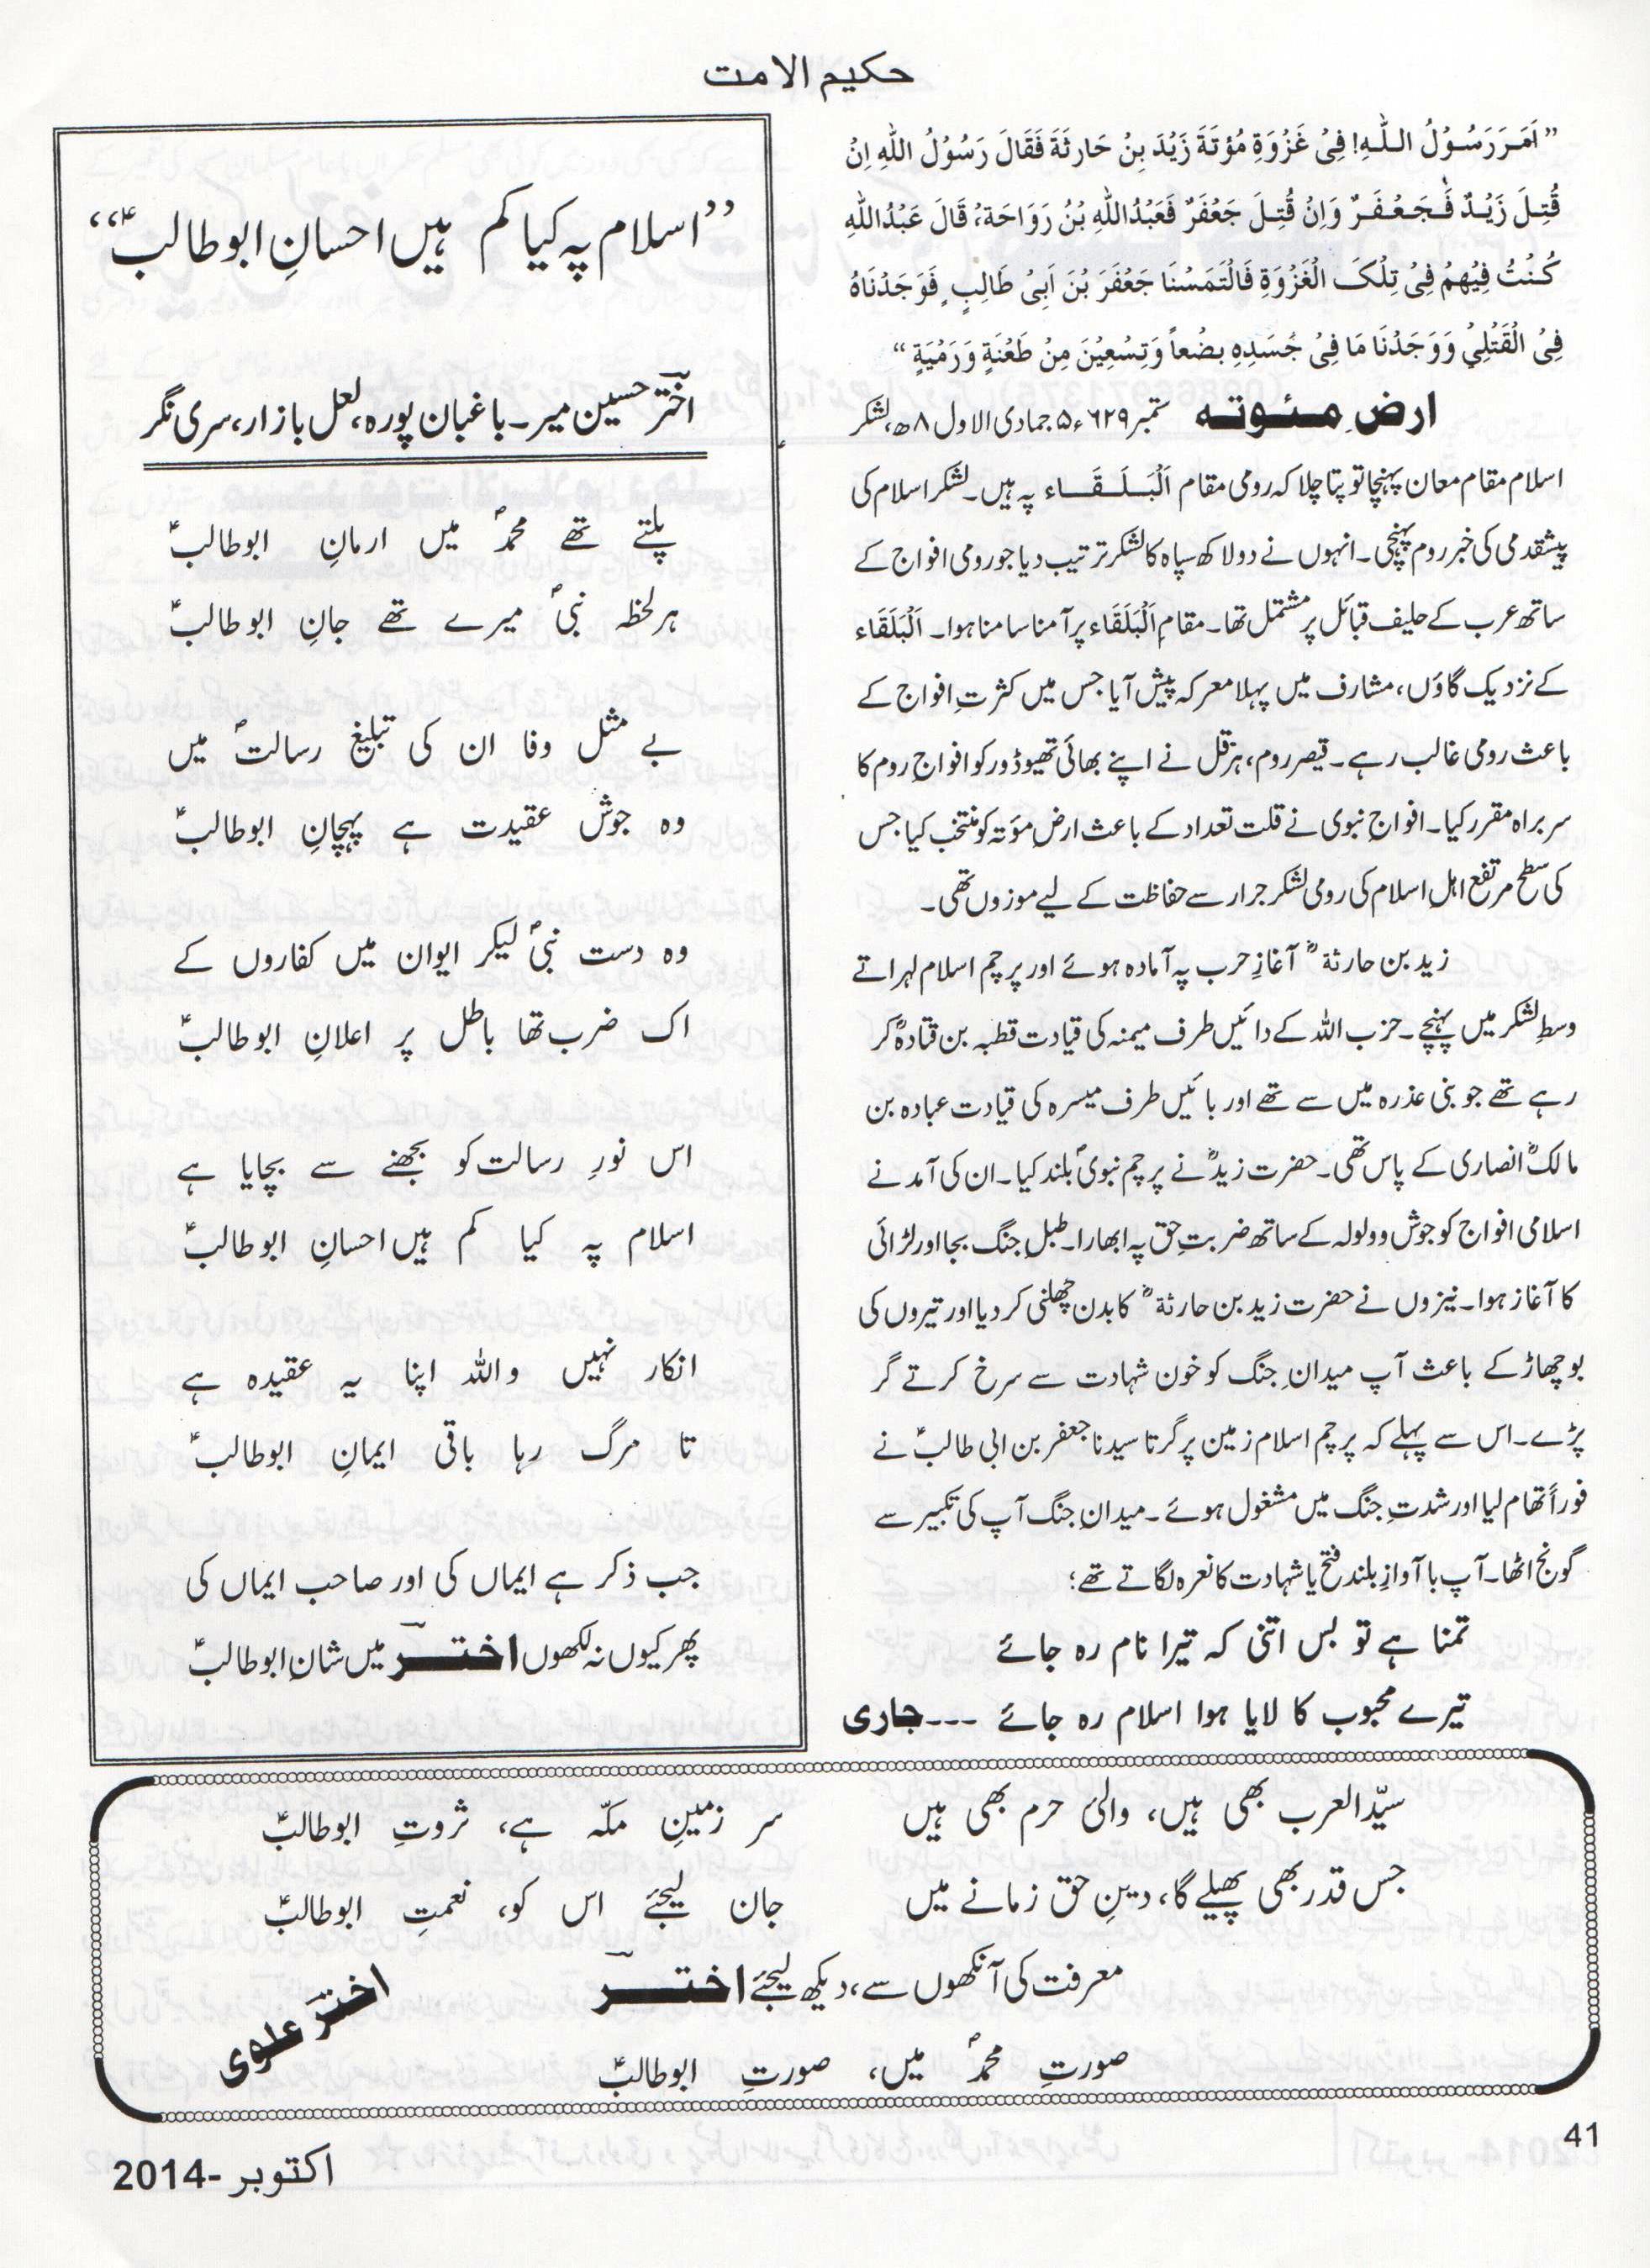 حکیم الامت
”اَمَرَ رَسُوْلُ اللہِ! فِیْ غَزْوَۃِ مُؤتَۃَ زَیْدَ بِنْ حَارِثَۃَ فَقَالَ رَسُوْلُ اللہِ اِنْ
قُتِلَ زَیْدٌ فَجَعْفَرٌ وَاِنْ قُتِلَ جَعْفَرٌ فَعَبْدُاللہِ بْنُ رَوَاحَۃ، قَالَ عَبْدُاللہِ
کُنْتُ فِیْھِمْ فِیْ تِلْکَ الْغَزْوَۃِ فَالْتَمَسْنَا جَعْفَرَ بْنَ اَبِیْ طَالِبٍ فَوَجَدْنَاہُ
فِیْ الْقَتْلِیْ وَوَجَدْنَا مَا فِیْ جَسَدِہِ بِضْعاً وَتِسْعِیْنَ مِنْ طَعْنَۃٍ وَرَمْیَۃٍ“
ارضِ مئوتہ ستمبر ۶۲۹ء ۵ جمادی الاول ۸ھ، لشکر
اسلام مقام معان پہنچا تو پتا چلا کہ رومی مقام اَلْبَلَقَاء پہ ہیں۔ لشکر اسلام کی
پیشقدمی کی خبر روم پہنچی۔ انہوں نے دو لاکھ سپاہ کا لشکر ترتیب دیا جو رومی افواج کے
ساتھ عرب کے حلیف قبائل پر مشتمل تھا۔ مقامِ اَلْبَلَقَاء پر آمنا سامنا ہوا۔ اَلْبَلَقَاء
کے نزدیک گاؤں، مشارف میں پہلا معرکہ پیش آیا جس میں کثرتِ افواج کے
باعث رومی غالب رہے۔ قیصر روم، ہرقل نے اپنے بھائی تھیوڈور کو افواجِ روم کا
سربراہ مقرر کیا۔ افواجِ نبوی نے قلت تعداد کے باعث ارضِ مؤتہ کو منتخب کیا جس
کی سطح مرتفع اہلِ اسلام کی رومی لشکر جرار سے حفاظت کے لیے موزوں تھی۔
زید بن حارثۃؓ آغازِ حرب پہ آمادہ ہوئے اور پرچم اسلام لہراتے
وسطِ لشکر میں پہنچے۔ حزب اللہ کے دائیں طرف میمنہ کی قیادت قطبہ بن قتادہؓ کر
رہے تھے جو بنی عذرہ میں سے تھے اور بائیں طرف میسرہ کی قیادت عبادہ بن
مالکؓ انصاری کے پاس تھی۔ حضرت زیدؓ نے پرچم نبویؐ بلند کیا۔ ان کی آمد نے
اسلامی افواج کو جوش و ولولہ کے ساتھ ضربتِ حق پہ ابھارا۔ طبلِ جنگ بجا اور لڑائی
کا آغاز ہوا۔ نیزوں نے حضرت زید بن حارثۃؓ کا بدن چھلنی کر دیا اور تیروں کی
بوچھاڑ کے باعث آپ میدانِ جنگ کو خون شہادت سے سرخ کرتے گر
پڑے۔ اس سے پہلے کہ پرچم اسلام زمین پر گرتا سیدنا جعفر بن ابی طالبؑ نے
فوراً تھام لیا اور شدتِ جنگ میں مشغول ہوئے۔ میدانِ جنگ آپ کی تکبیر سے
گونج اٹھا۔ آپ با آوازِ بلند فتح یا شہادت کا نعرہ لگاتے تھے؛
تمنا ہے تو بس اتنی کہ تیرا نام رہ جائے
تیرے محبوب کا لایا ہوا اسلام رہ جائے ---جاری
”اسلام پہ کیا کم ہیں احسانِ ابوطالبؑ“
اختر حسین میر۔ باغبان پورہ، لعل بازار، سری نگر
پلتے تھے محمدؐ میں ارمانِ ابوطالبؑ
ہر لحظہ نبیؐ میرے تھے جانِ ابوطالبؑ
بے مثل وفا ان کی تبلیغ رسالتؐ میں
وہ جوش عقیدت ہے پہچانِ ابوطالبؑ
وہ دست نبیؐ لیکر ایوان میں کفاروں کے
اک ضرب تھا باطل پر اعلانِ ابوطالبؑ
اس نورِ رسالت کو بجھنے سے بچایا ہے
اسلام پہ کیا کم ہیں احسانِ ابوطالبؑ
انکار نہیں واللہ اپنا یہ عقیدہ ہے
تا مرگ رہا باقی ایمانِ ابوطالبؑ
جب ذکر ہے ایماں کی اور صاحب ایماں کی
پھر کیوں نہ لکھوں اختر میں شانِ ابوطالبؑ
سیّدالعرب بھی ہیں، والیٔ حرم بھی ہیں سر زمینِ مکّہ ہے، ثروتِ ابوطالبؑ
جس قدر بھی پھیلے گا، دینِ حق زمانے میں جان لیجئے اس کو، نعمتِ ابوطالبؑ
معرفت کی آنکھوں سے، دیکھ لیجئے اختر
صورتِ محمدؐ میں، صورتِ ابوطالبؑ
اختر علوی
41
اکتوبر -2014